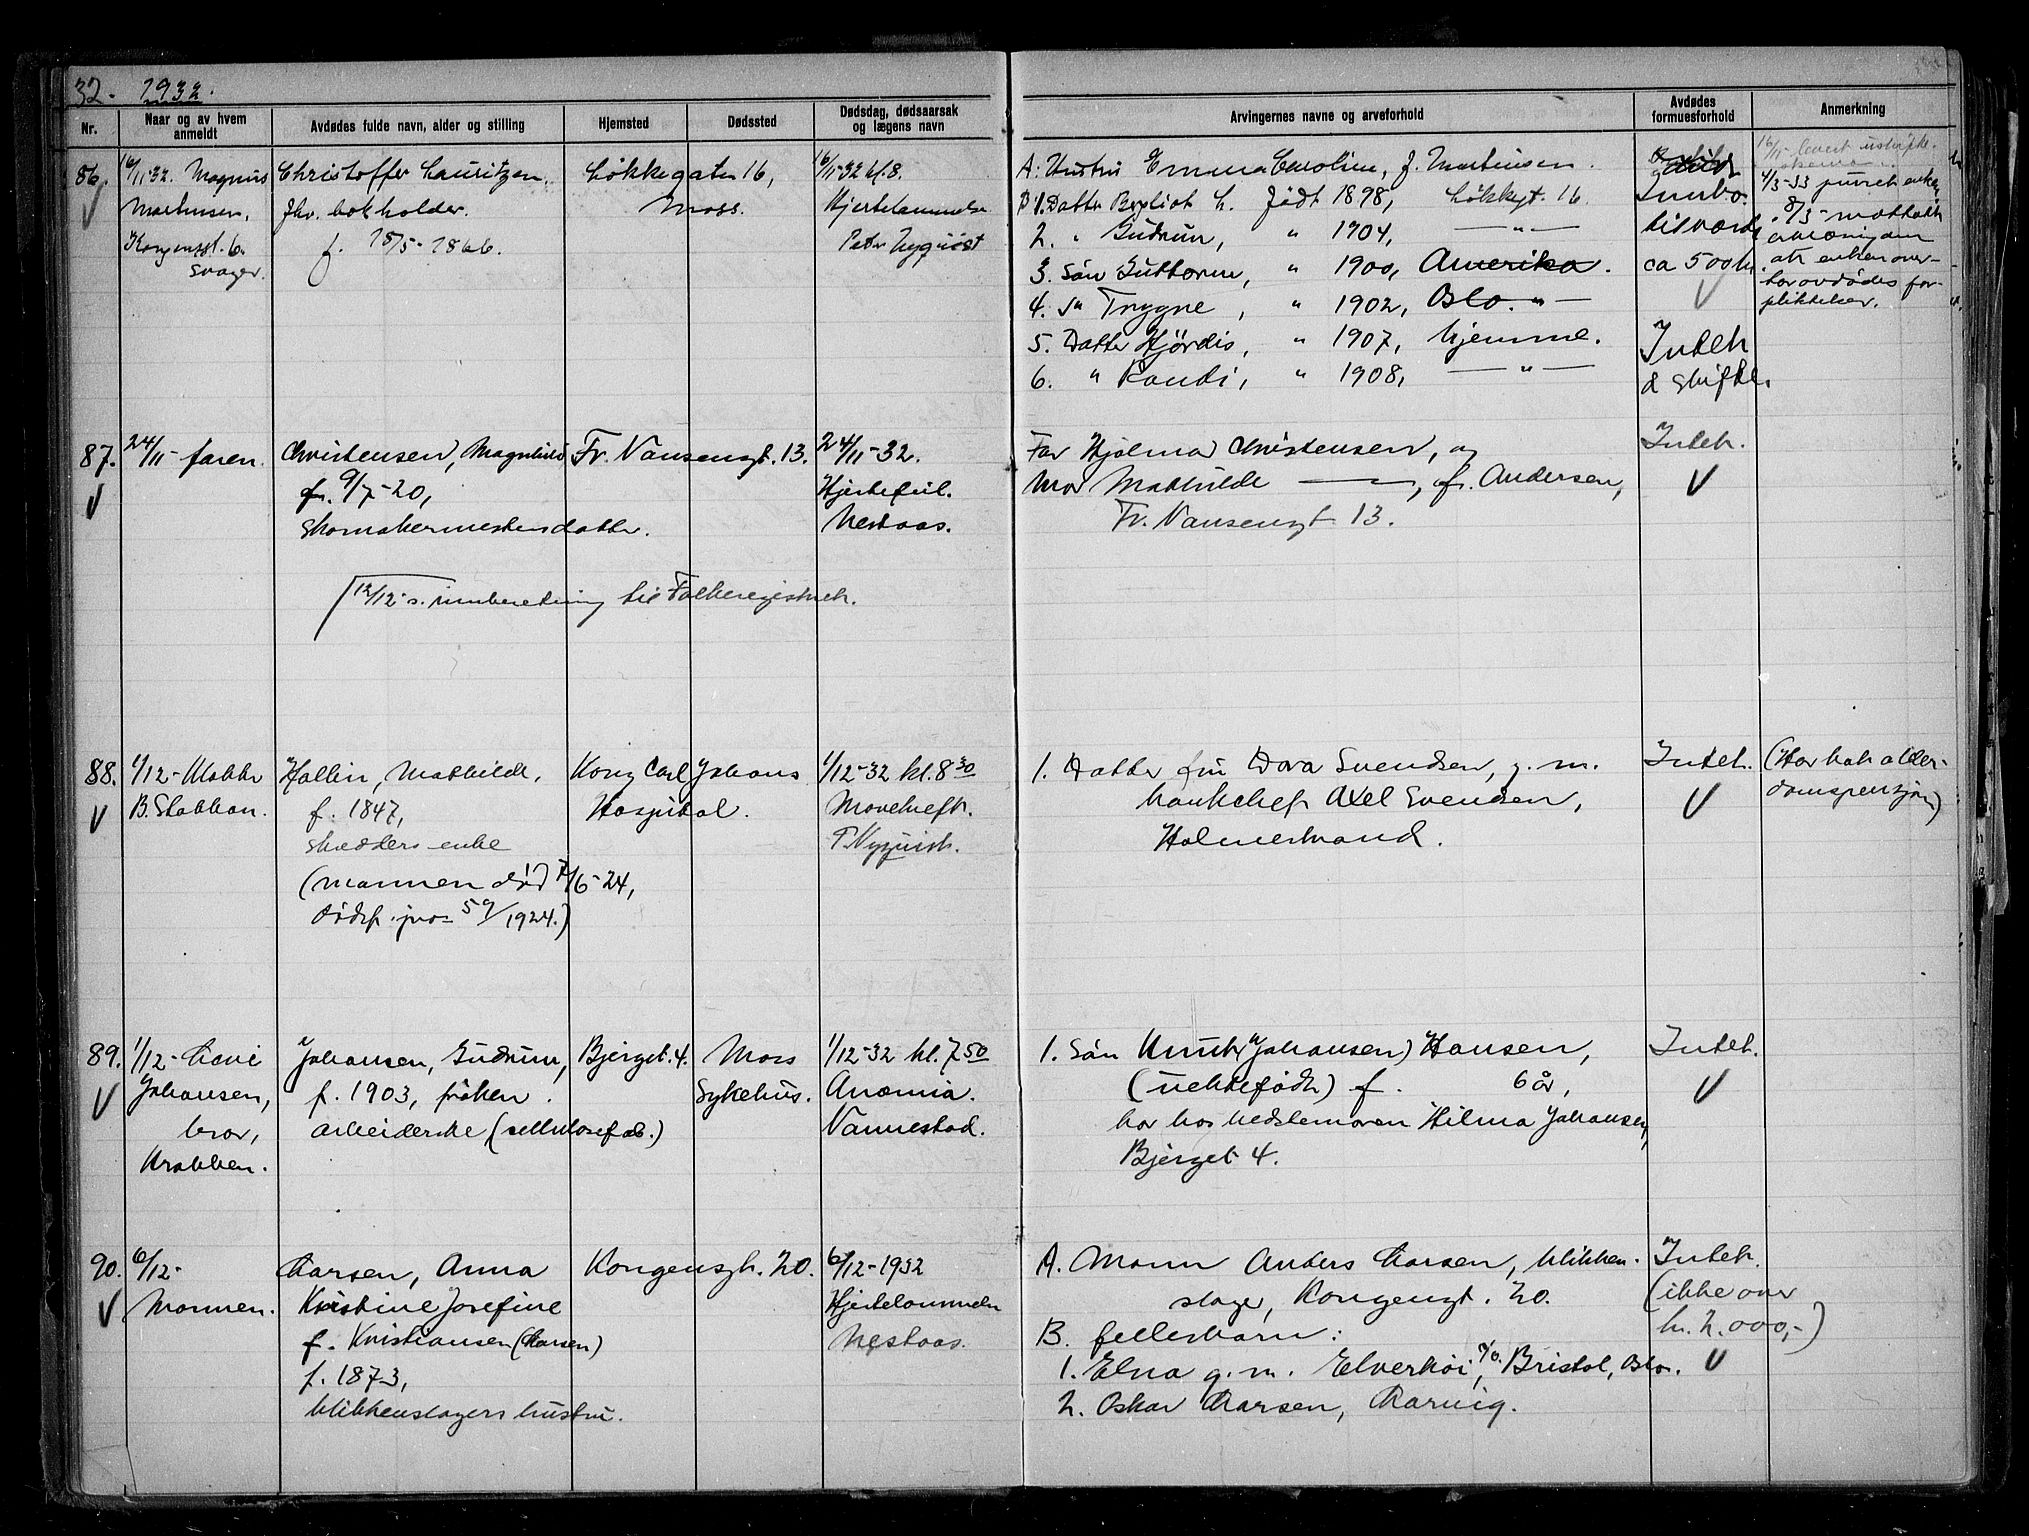 32. 1932.
Nr.
Naar og av hvem
anmeldt
Avdødes fulde navn, alder og stilling
Hjemsted
Dødssted
Dødsdag, dødsaarsak
og lægens navn
Arvingernes navne og arveforhold
Avdødes
formuesforhold
Anmerkning
86.
16/11-32. Magnus
Martinsen,
Kongensgt. 6.
svager.
Christoffer Lauritzen,
fhv. bokholder.
f. 18/5-1866.
Løkkegaten 16,
Moss.
16/11-32 kl. 8.
Hjertelammelse
Peter Nyquist
A: Hustru Emma Caroline, f. Martinsen
B 1. Datter Bergliot L. født 1898, Løkkegt. 16.
2. " Gudrun, " 1904, — " —
3. Søn Guttorm, " 1900, Amerika.
4. Sn Trygve, " 1902, Oslo. " —
5. Datter Hjørdis, " 1907, hjemme.
6. " Randi, " 1908, — " —
Innbo
til værdi
ca 500 kr.
Intet
å skifte.
16/11 levert
4/3-33 purret enken
8/3- mottatt
erklæring om
at enken over-
tar avdødes for-
pliktelser.
87.
24/11- faren.
Christensen, Magnhild
f. 9/7-20,
skomakermestersdatter.
Fr. Nansensgt. 13.
24/11-32.
Hjertefeil.
Nestaas.
Far Hjalmar Christensen, og
Mor Mathilde ——, f. Andersen,
Fr. Nansensgt. 13.
Intet.
12/12- s. innberetning til Folkeregistret.
88.
1/12- Mette
B. Stabban.
Hallin, Mathilde,
f. 1847,
skredders enke
(mannen død 7/6-24,
dødsf. prot. 59/1924.)
Kong Carl Johans
Hospital.
1/12-32 kl. 8 30
Marekreft.
P. Nyquist.
1. Datter fru Dora Svendsen, g. m.
bankchef Axel Svendsen,
Holmestrand.
Intet.
(Har hatt alder-
domspensjon)
89.
1/12- Lovi
Johansen,
bror,
Krabben.
Johansen, Gudrun,
f. 1903, frøken.
arbeiderske (cellulosefab.)
Bjerget. 4.
Moss
Sykehus.
1/12-32 kl. 7 50
Anæmia.
Vannestad.
1. Søn Knut (Johansen) Hansen,
(uektefødt) f. 6 år,
bor hos bedstemoren Hilma Johansen,
Bjerget 4.
Intet.
90.
6/12-
Mannen.
Larsen, Anna
Kristine Josefine
f. Kristiansen (Larsen)
f. 1873,
blikkenslagers hustru.
Kongensgt. 20.
6/12-1932
Hjertelammelse
Nestaas.
A. Mann Anders Larsen, blikken-
slager, Kongensgt. 20.
B. fellesbarn:
1. Elna g. m. Elverhøi, c/o. Bristol, Oslo.
2. Oskar Larsen, Larvig.
Intet.
(ikke over
kr. 2.000,-)